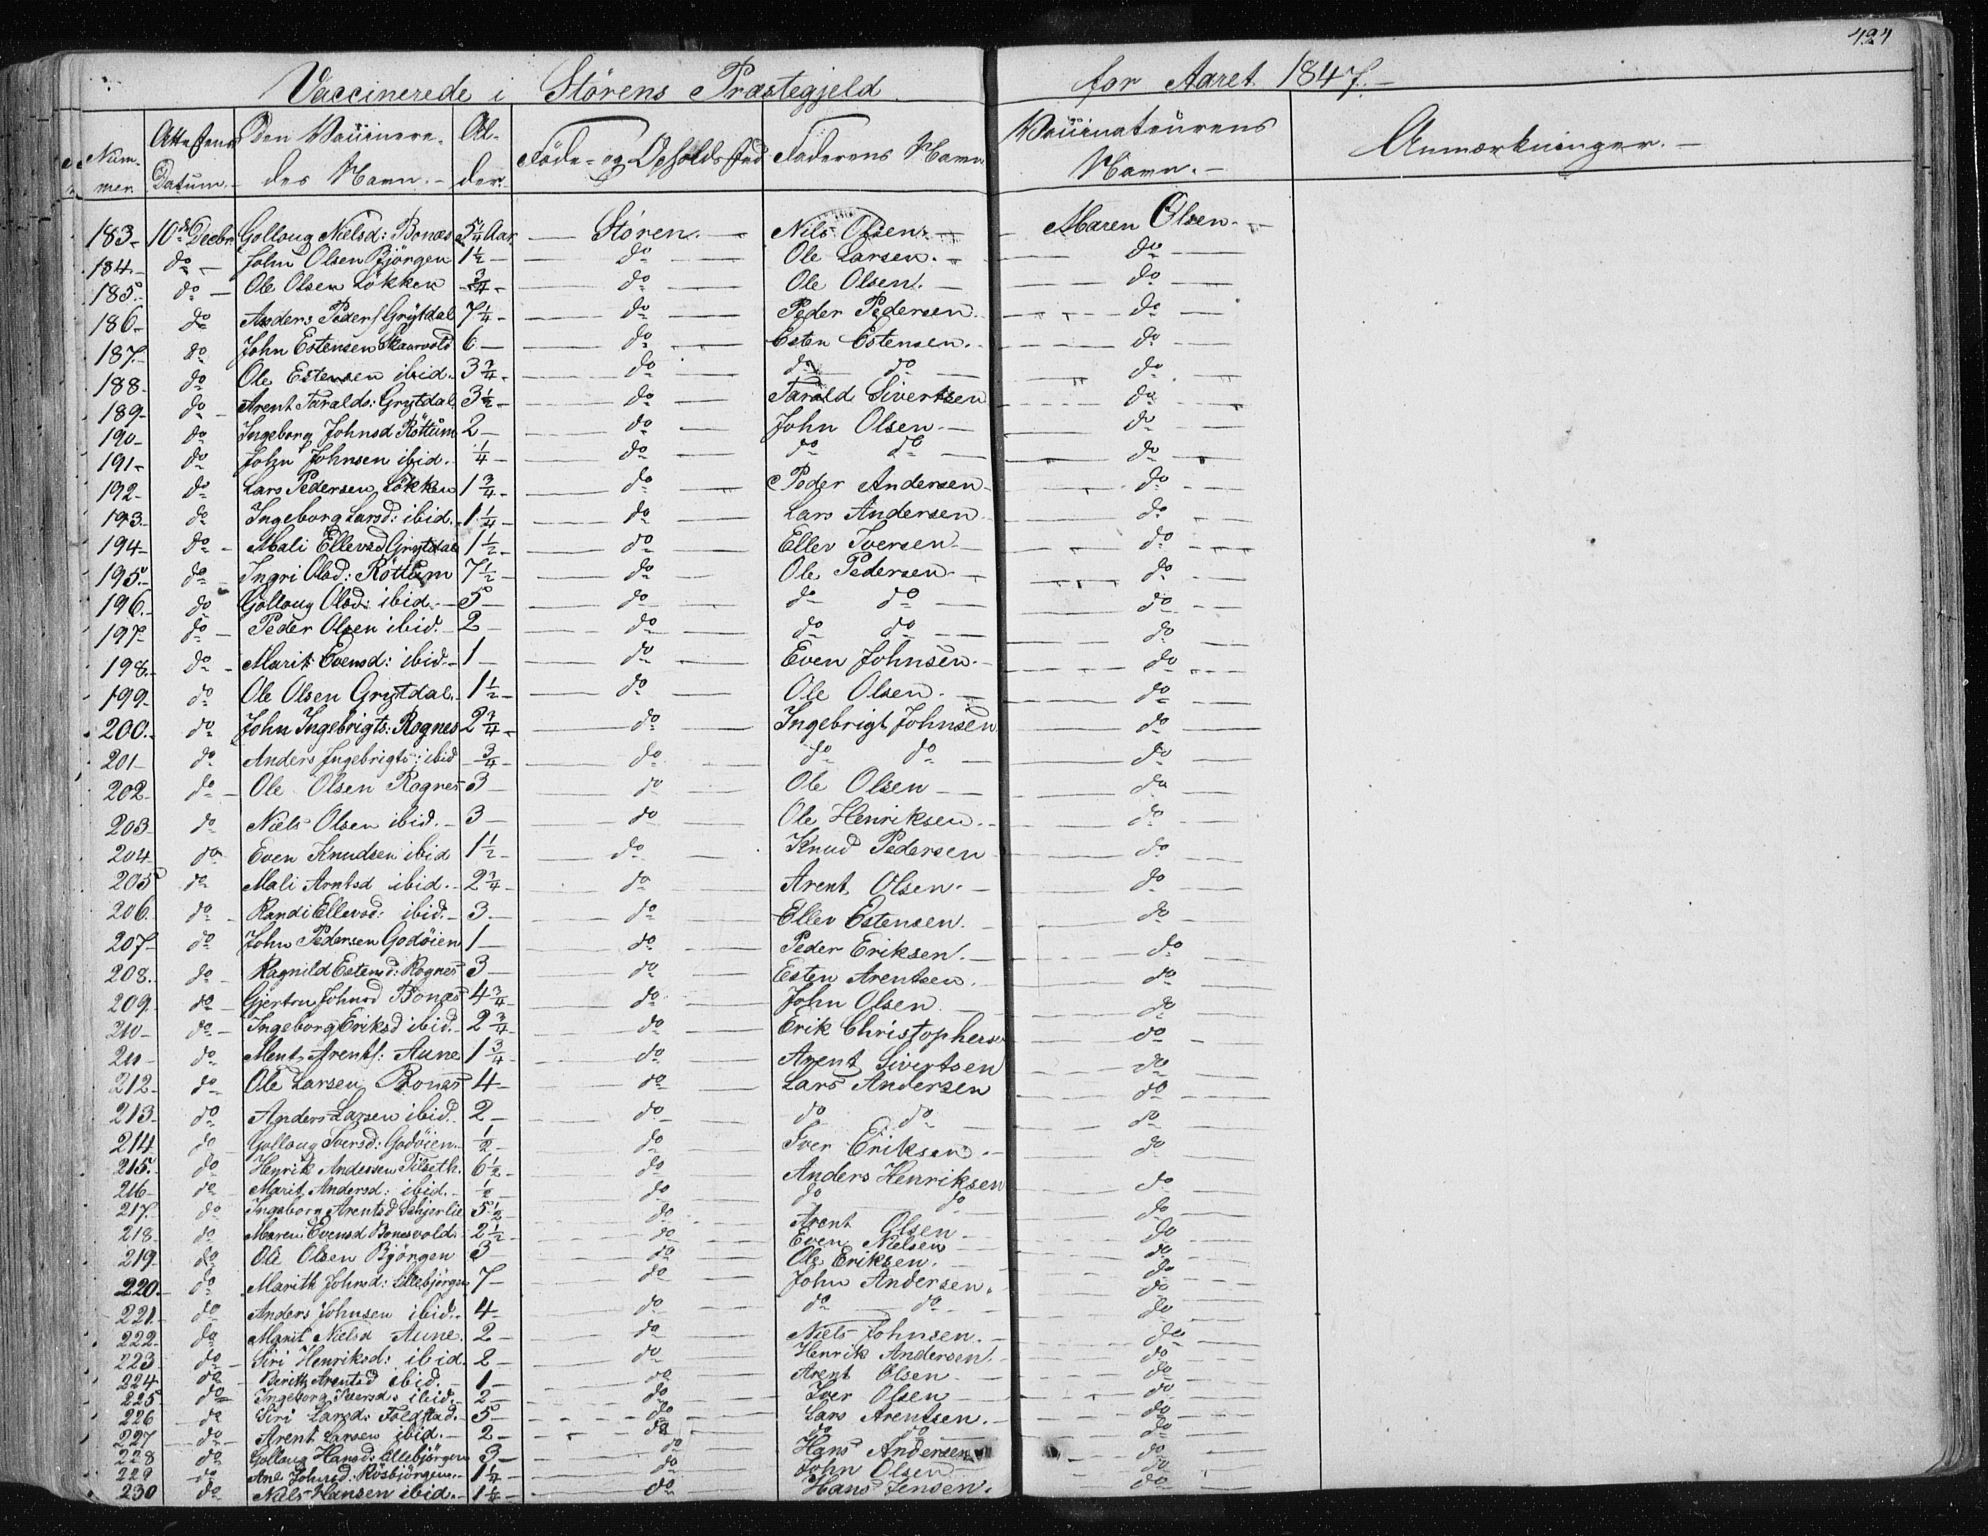 424
Vaccinerede i Störens Præstegjeld for Aaret 1847.-
Num- mer Attestens Datum.- Den Vaccinere- des Navn.- Al- der.- Föde- og Opholds Sted Faderens Navn Vaccinateurens Navn.- Anmærkninger.-
183- 10de Decbr Gollaug Nielsd: Bonæs 5 1/4 Aar — Stören.- Nils Olsen.- Maren Olsen.-
184.- do John Olsen Bjørgen 1 1/2 - do Ole Larsen.- do
185.- do Ole Olsen Løkken 3/4 - do Ole Olsen.- do
186- do Anders Peders. Grytdal 7 1/4 - do Peder Pedersen do
187.- do John Estensen Skaarvold 6 - do Esten Estensen.- do
188- do Ole Estensen ibid. 3 3/4 - do do do do
189- do Arent Taralds: Grytdal 3 1/2 - do Tarald Sivertsen do
190- do Ingeborg Johnsd Röttum 2 - do John Olsen.- do
191- do John Johnsen ibid. 1/4 - do do do do
192- do Lars Pedersen Løkken 1 3/4 - do Peder Andersen do
193.- do Ingeborg Larsd: ibid. 1 1/4 - do Lars Andersen do
194- do Mali Ellevsd Grytdal 1 1/2 - do Ellev Iversen do
195.- do Ingri Olsd: Röttum 7 1/2 - do Ole Pedersen.- do
196.- do Gollaug Olsd: ibid.- 5 - do do do do
197- do Peder Olsen ibid.- 2 - do do do do
198.- do Marit Evensd: ibid.- 1 - do Even Johnsen.- do
199- do Ole Olsen Grytdal 1 1/2 - do Ole Olsen.- do
200.- do John Ingebrigts: Rognes 2 3/4 - do Ingebrigt Johnsen do
201- do Anders Ingebrigts: ibid 3/4 - do do do do
202- do Ole Olsen Rognes 3 - do Ole Olsen do
203- do Niels Olsen ibid.- 3 - do Ole Henriksen.- do
204. do Even Knudsen ibid 1 1/2 - do Knud Pedersen do
205 do Mali Arntsd ibid.- 2 3/4 - do Arent Olsen.- do
206.- do Randi Ellevsd: ibid.- 3.- do Ellev Estensen. do
207- do John Pedersen Godøien 1 - do Peder Eriksen.- do
208.- do Ragnild Estensd: Rognes 3 - do Esten Arentsen. do
209.- do Gjertru Johnsd Bonæs 4 3/4 - do John Olsen do
210- do Ingeborg Eriksd ibid.- 2 3/4 - do Erik Christophers do
211- do Ment Arents: Aune 1 3/4 - do Arent Sivertsen do
212.- do Ole Larsen Bonæs 4 - do Lars Andersen do
213.- do Anders Larsen ibid. 2 - do do do do
214 do Gollaug Iversd: Godøien 1/2 - do Iver Eriksen.- do
215.- do Henrik Andersen Tilseth. 6 1/2 - do Anders Henriksen
216- do Marit Andersd: ibid.- 1/2 - do do do do
217.- do Ingeborg Arentsd 5 1/2 do Arent Olsen do
218.- do Maren Evensd Bonesvold 2 1/2 - do Even Nielsen do
219- do Ole Olsen Bjørgen 3 - do Ole Eriksen. do
220.- do Marith Johnsd: Lillebjørgen 7 - do John Andersen.- do
221.- do Anders Johnsen ibid.- 4 - do do do do
222- do Marit Nielsd Aune. 2 - do Niels Johnsen.- do
223- do Siri Henriksd: ibid. 2 - do Henrik Andersen.- do
224 do Berith Arentsd ibid.- 1 - do Arent Olsen do
225 do Ingeborg Iversd: ibid.- 2 - do Iver Olsen do
226 do Siri Larsd: Foldstad.- 5 - do Lars Arentsen.- do
227 do Arent Larsen ibid.- 2 - do do do do
228 do Gollaug Hansd: Lillebjørgen 3 - do Hans Andersen do
229 do Ane Johnsd: Rösbjørgen.- 1 1/4 - do John Olsen do
230 do Niels Hansen ibid.- 1 1/4 - do Hans Jensen. do